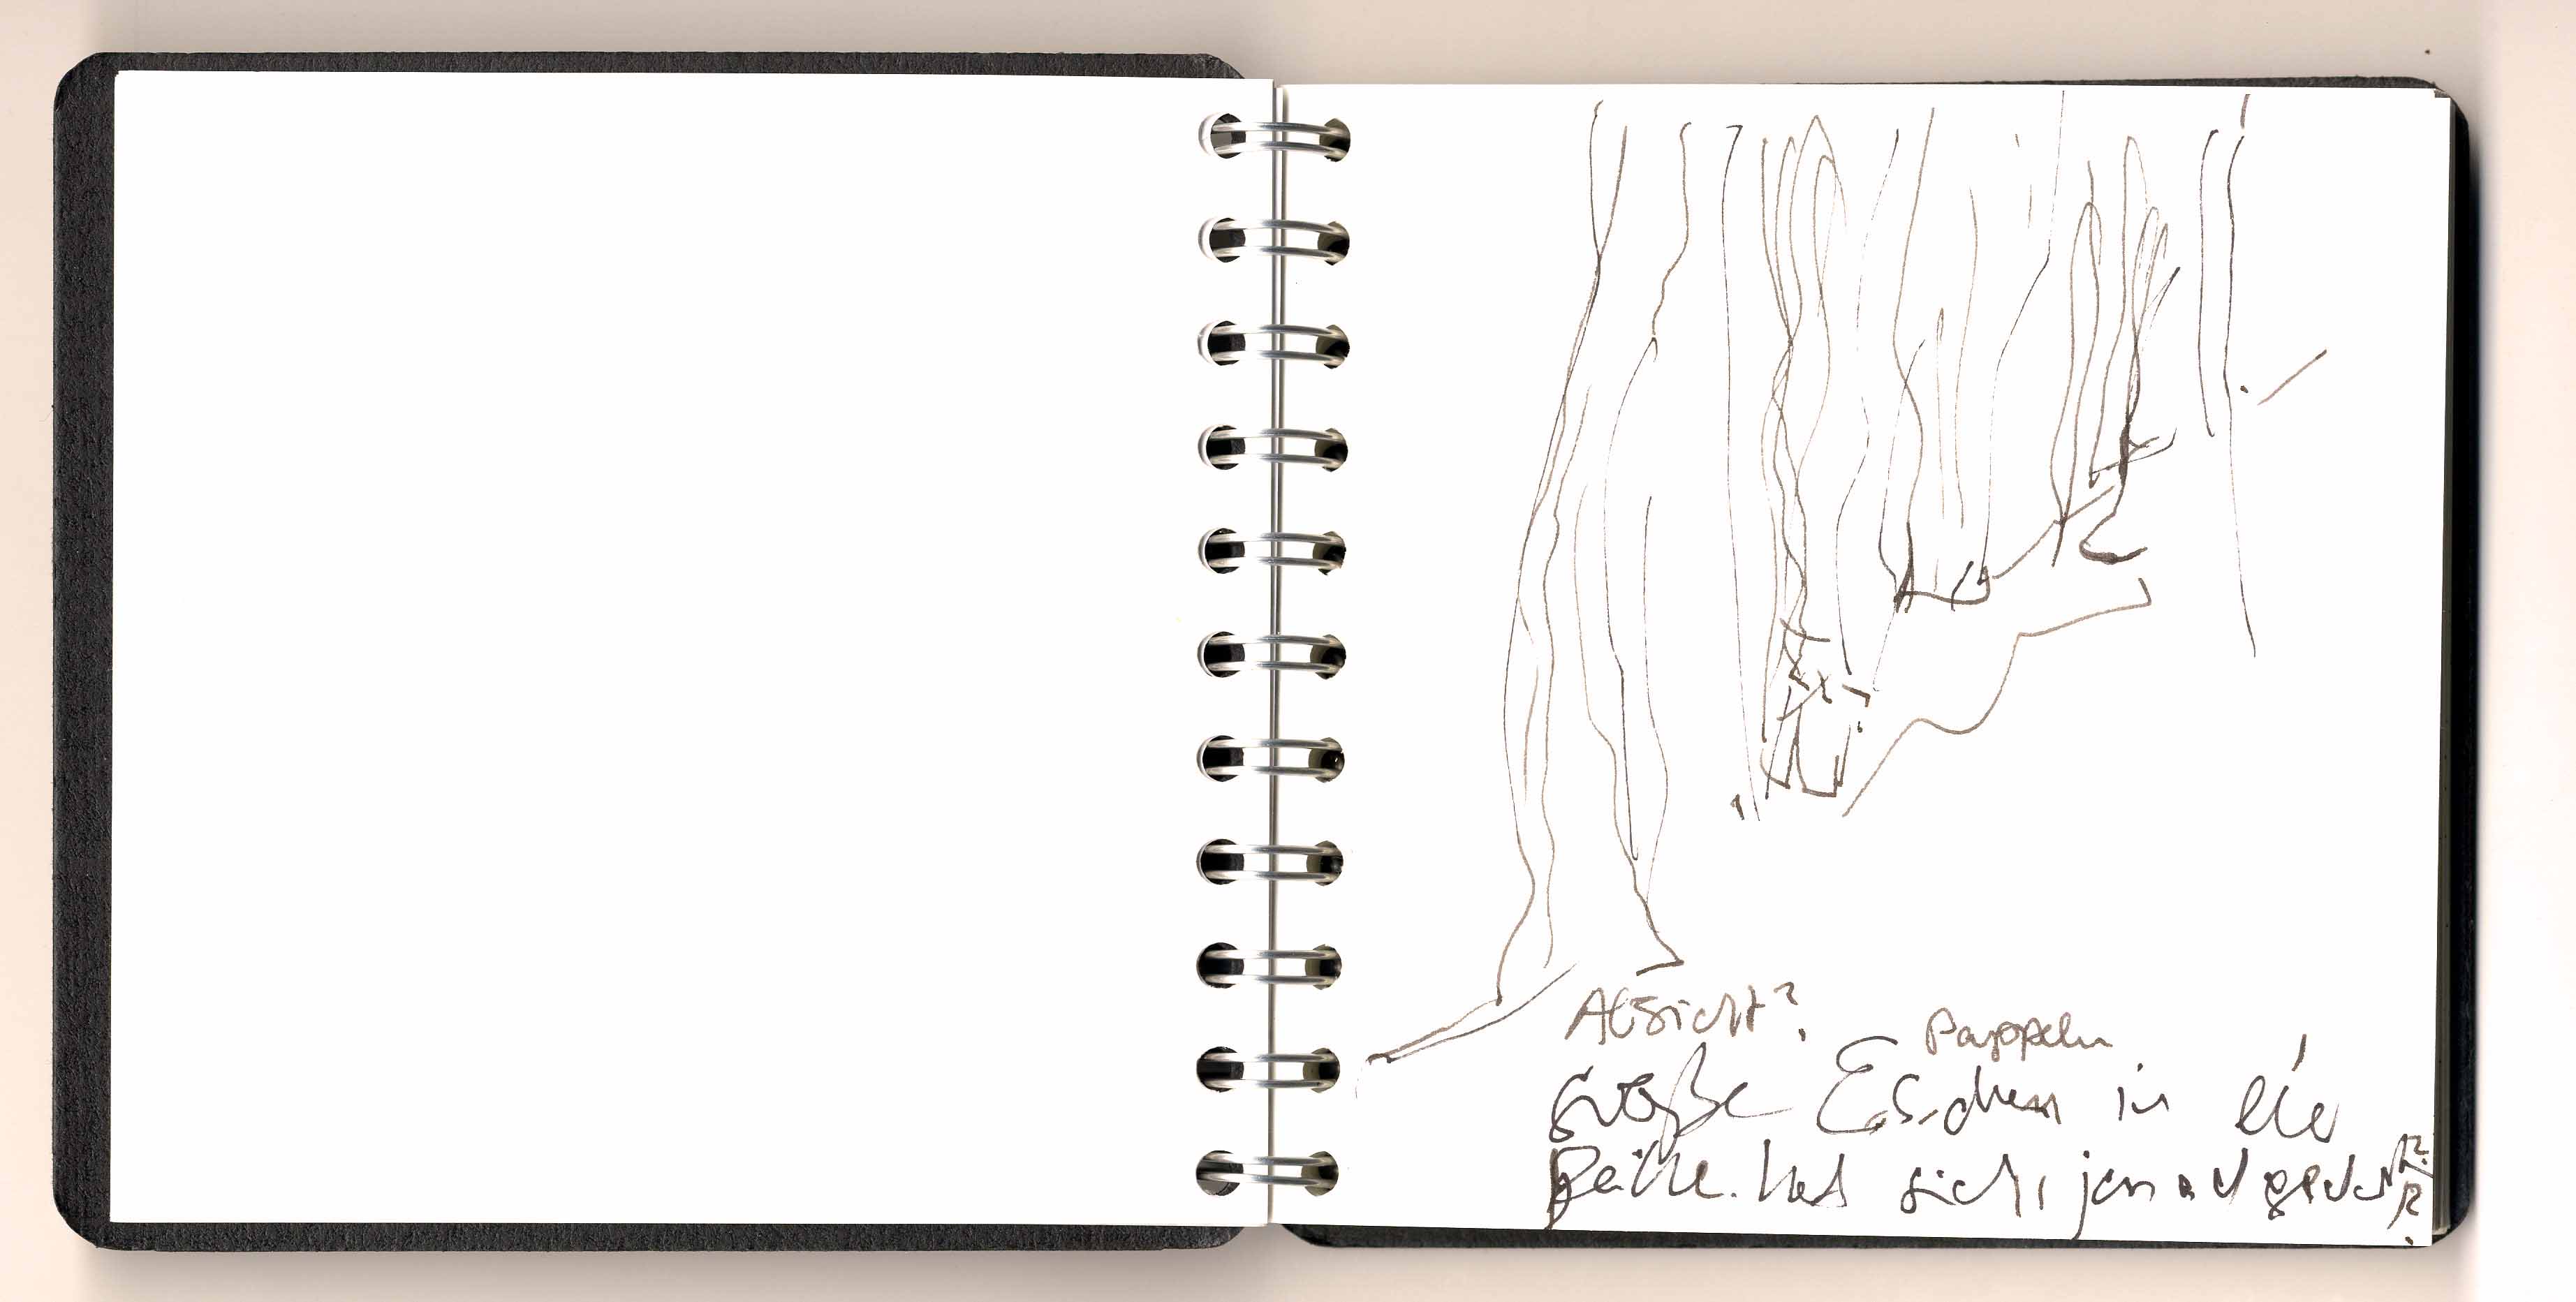 Absicht?
Pappeln
große Eschen in die
Reihe. Hat sich jemand gedacht?